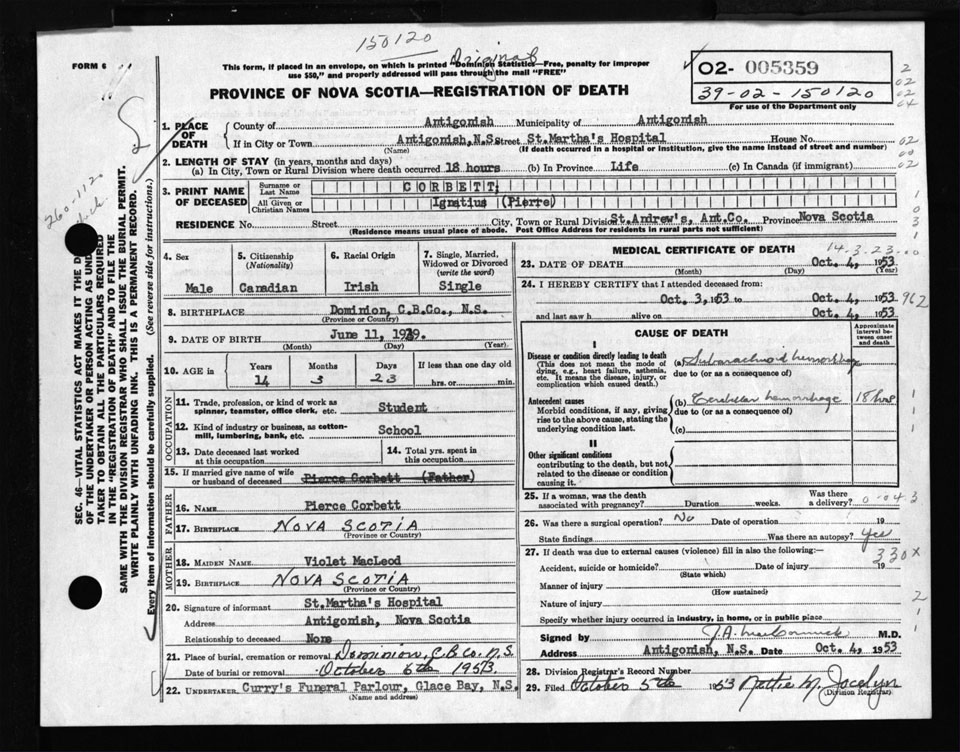 150120
Original
FORM 6
This form, if placed in an envelope, on which is printed "Dominion Statistics—Free, penalty for improper
use $50," and properly addressed will pass through the mail "FREE"
PROVINCE OF NOVA SCOTIA—REGISTRATION OF DEATH
02- 005359
39-02-150120
For use of the Department only
1. PLACE OF DEATH
County of Antigonish Municipality of Antigonish
If in City or Town Antigonish, N.S. Street St.Martha's Hospital House No.
(Name) (If death occurred in a hospital or institution, give the name instead of street and number)
2. LENGTH OF STAY (in years, months and days)
(a) In City, Town or Rural Division where death occurred 18 hours (b) In Province Life (c) In Canada (if immigrant)
3. PRINT NAME OF DECEASED
Surname or Last Name CORBETT,
All Given or Christian Names Ignatius (Pierre)
RESIDENCE No. Street City, Town or Rural Division St.Andrew's, Ant.Co. Province Nova Scotia
(Residence means usual place of abode. Post Office Address for residents in rural parts not sufficient)
4. Sex
Male
5. Citizenship
(Nationality)
Canadian
6. Racial Origin
Irish
7. Single, Married, Widowed or Divorced
(write the word)
Single
8. BIRTHPLACE Dominion, C.B.Co., N.S.
(Province or Country)
9. DATE OF BIRTH June 11, 1939.
(Month) (Day) (Year)
10. AGE in
Years Months Days If less than one day old
14 3 23 hrs. or min.
OCCUPATION
11. Trade, profession, or kind of work as
spinner, teamster, office clerk, etc. Student
12. Kind of industry or business, as cotton-
mill, lumbering, bank, etc. School
13. Date deceased last worked
at this occupation
14. Total yrs. spent in
this occupation
15. If married give name of wife
or husband of deceased Pierce Corbett (Father)
FATHER
16. Name Pierce Corbett
17. Birthplace NOVA SCOTIA
(Province or Country)
MOTHER
18. Maiden Name Violet MacLeod
19. Birthplace NOVA SCOTIA
(Province or Country)
20. Signature of informant St.Martha's Hospital
Address Antigonish, Nova Scotia
Relationship to deceased None
21. Place of burial, cremation or removal Dominion, C.B Co. N.S.
Date of burial or removal October 6th 1953.
22. Undertaker Curry's Funeral Parlour, Glace Bay, N.S.
(Name and address)
MEDICAL CERTIFICATE OF DEATH
14-3-23
23. DATE OF DEATH Oct. 4, 1953
(Month) (Day) (Year)
24. I HEREBY CERTIFY that I attended deceased from
Oct. 3, 1953 to Oct. 4, 1953
962
and last saw h alive on Oct. 4, 1953
CAUSE OF DEATH
Approximate interval between onset and death
I
Disease or condition directly leading to death
(This does not mean the mode of
dying, e.g., heart failure, asthenia,
etc. It means the disease, injury, or
complication which caused death.)
(a) Subarachnoid hemorrhage
due to (or as a consequence of)
Antecedent causes
Morbid conditions, if any, giving
rise to the above cause, stating the
underlying condition last.
(b) Cerebellar hemorrhage 18 hrs
due to (or as a consequence of)
(c)
II
Other significant conditions
contributing to the death, but not
related to the disease or condition
causing it.
25. If a woman, was the death
associated with pregnancy? Duration weeks. Was there
a delivery?
0-043
26. Was there a surgical operation? No Date of operation 19
State findings Was there an autopsy? Yes
27. If death was due to external causes (violence) fill in also the following:—
330x
Accident, suicide or homicide? Date of injury 19
(State which)
Manner of injury
(How sustained)
Nature of injury
Specify whether injury occurred in industry, in home, or in public place
Signed by J.A. MacCormick M.D.
Address Antigonish, N.S. Date Oct. 4, 1953
28. Division Registrar's Record Number
29. Filed October 5th 1953 Nettie M. Jocelyn
(Division Registrar)
SEC. 46—VITAL STATISTICS ACT MAKES IT THE
OF THE UNDERTAKER OR PERSON ACTING AS
TAKER TO OBTAIN ALL THE PARTICULARS REQUIRED
IN THE "REGISTRATION OF DEATH" AND TO FILE THE
SAME WITH THE DIVISION REGISTRAR WHO SHALL ISSUE THE BURIAL PERMIT.
WRITE PLAINLY WITH UNFADING INK. THIS IS A PERMANENT RECORD.
Every item of information should be carefully supplied. (See reverse side for instructions.)
260-1120